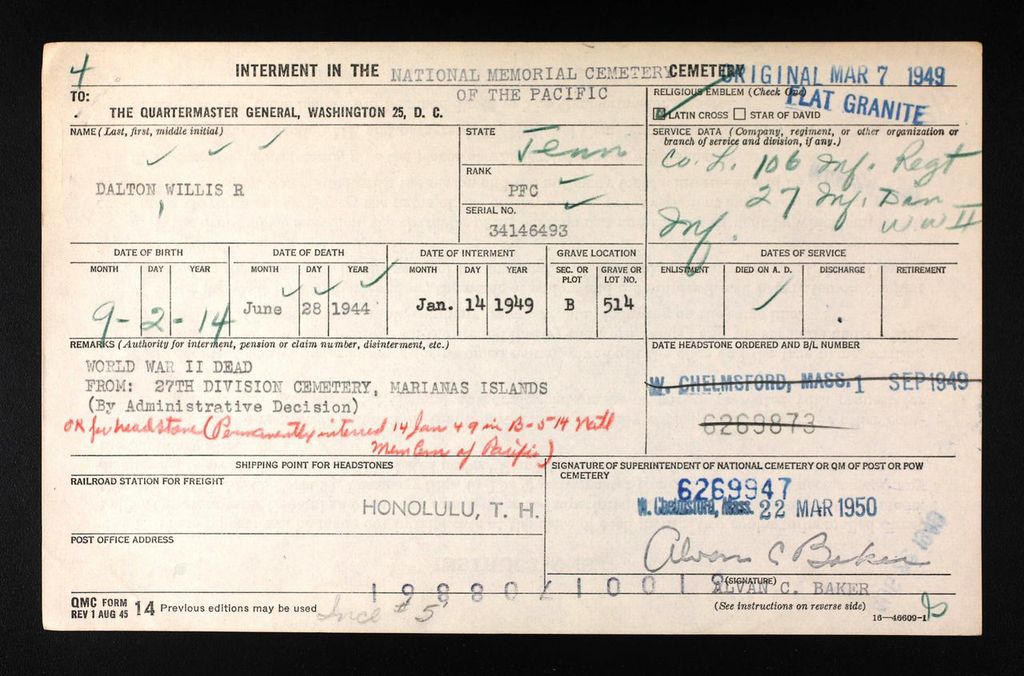 4
INTERMENT IN THE NATIONAL MEMORIAL CEMETERY CEMETERY
OF THE PACIFIC
ORIGINAL MAR 7 1949
FLAT GRANITE
TO:
THE QUARTERMASTER GENERAL, WASHINGTON 25, D. C.
RELIGIOUS EMBLEM (Check One)
LATIN CROSS STAR OF DAVID
NAME (Last, first, middle initial)
DALTON WILLIS R
STATE
Tenn
RANK
PFC
SERIAL NO.
34146493
SERVICE DATA (Company, regiment, or other organization or
branch of service and division, if any.)
Co. L. 106 Inf. Regt
27 Inf. Divn
Inf. W W II
DATE OF BIRTH
MONTH DAY YEAR
9-2-14
DATE OF DEATH
MONTH DAY YEAR
June 28 1944
DATE OF INTERMENT
MONTH DAY YEAR
Jan. 14 1949
GRAVE LOCATION
SEC. OR PLOT GRAVE OR LOT NO.
B 514
DATES OF SERVICE
ENLISTMENT DIED ON A. D. DISCHARGE RETIREMENT
REMARKS (Authority for interment, pension or claim number, disinterment, etc.)
WORLD WAR II DEAD
FROM: 27TH DIVISION CEMETERY, MARIANAS ISLANDS
(By Administrative Decision)
OK for headstone (Permanently interred 14 Jan 49 in B-514 Natl
Mem Cem of Pacific)
DATE HEADSTONE ORDERED AND B/L NUMBER
W. CHELMSFORD, MASS. 1 SEP 1949
6269873
SHIPPING POINT FOR HEADSTONES
RAILROAD STATION FOR FREIGHT
HONOLULU, T. H.
POST OFFICE ADDRESS
SIGNATURE OF SUPERINTENDENT OF NATIONAL CEMETERY OR QM OF POST OR POW
CEMETERY
6269947
W. Chelmsford, Mass. 22 MAR 1950
Alvan C Baker
(SIGNATURE)
ALVAN C. BAKER
(See instructions on reverse side)
QMC FORM
REV 1 AUG 45 14 Previous editions may be used
# 5
16—46609-1